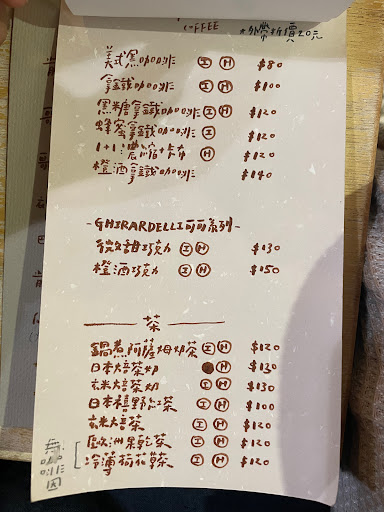 COFFEE
*外帶折價20元
美式黑咖啡 I H $80
拿鐵咖啡 I H $100
黑糖拿鐵咖啡 I H $120
蜂蜜拿鐵咖啡 I $120
1+1濃縮+卡布 H $120
橙酒拿鐵咖啡 $140
-GHIRARDELLI可可系列-
微甜巧克力 I H $130
橙酒巧克力 I H $150
茶
鍋煮阿薩姆奶茶 I H $120
日本焙茶奶 H $130
玄米焙茶奶 I H $130
日本嬉野紅茶 I H $100
玄米焙茶 I H $120
歐洲果乾茶 I H $120
冷薄荷花草茶 I H $120
無咖啡因